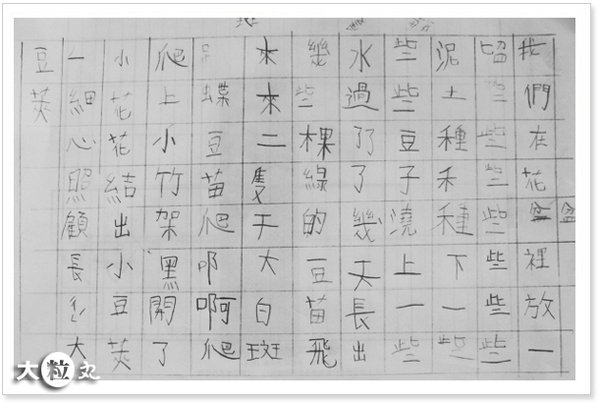 我們在花盆裡放一
盆
些些些些些些
泥土種禾種下一些
些些豆子澆上一些
水過了了幾天長出
幾些棵綠的豆苗飛
來來二隻干大白斑
蝶豆苗爬呀啊爬
爬上小竹架黑開了
小花花結出小豆莢
一細心照顧長大
豆莢
大粒丸